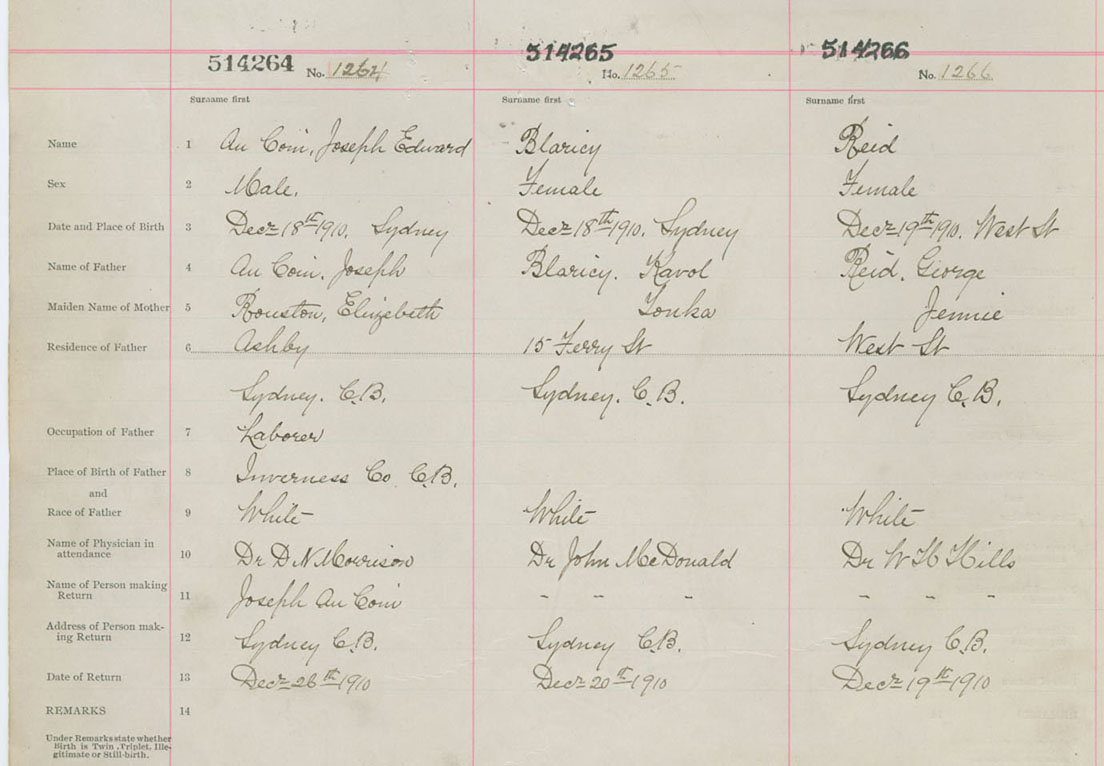 514264 No. 1264 514265 No. 1265 514266 No. 1266
Surname first Surname first Surname first
Name 1 Au Coin, Joseph Edward Blaricy Reid
Sex 2 Male. Female Female
Date and Place of Birth 3 Decr 18th 1910. Sydney Decr 18th 1910. Sydney Decr 19th 1910. West St
Name of Father 4 Au Coin. Joseph Blaricy. Karol Reid. George
Maiden Name of Mother 5 Rouston, Elizebeth Tonka Jennie
Residence of Father 6 Ashby 15 Ferry St West St
Sydney. C.B. Sydney. C.B. Sydney C.B.
Occupation of Father 7 Laborer
Place of Birth of Father 8 Inverness Co C.B.
and
Race of Father 9 White White White
Name of Physician in
attendance 10 Dr D N Morrison Dr John McDonald Dr W H Hills
Name of Person making
Return 11 Joseph Au Coin - - - - - -
Address of Person mak-
ing Return 12 Sydney C.B. Sydney C.B. Sydney C.B.
Date of Return 13 Decr 26th 1910 Decr 20th 1910 Decr 19th 1910
REMARKS 14
Under Remarks state whether
Birth is Twin, Triplet, Ille-
gitimate or Still-birth.